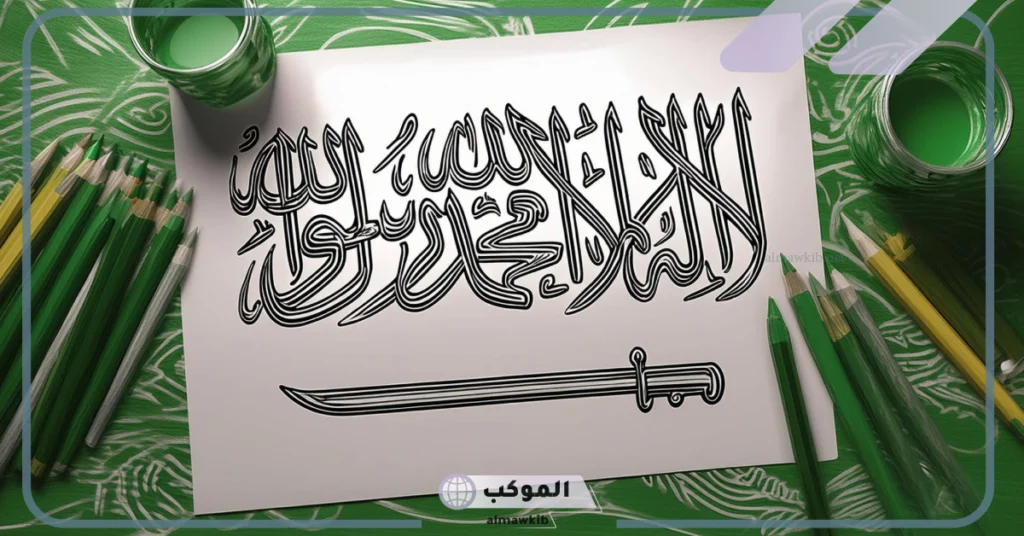 لا إله إلا الله محمد رسول الله
almawkib
الموكب
almawkib